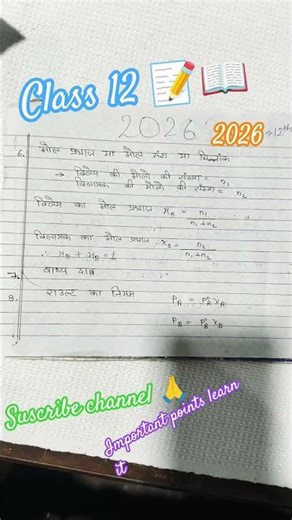 Class 12 📝 📖
2026
2026 →12th
6. मोल प्रभाज या मोल अंश या भिन्नांक
→ विलेय की मोलों की संख्या = n₁
विलायक की मोलों की संख्या = n₂
विलेय का मोल प्रभाज x_A = n₁/n₁+n₂
विलायक का मोल प्रभाज x_B = n₂/n₁+n₂
∴ x_A + x_B = 1
7. वाष्प दाब
8. राउल्ट का नियम P_A = P°_A X_A
P_B = P°_B X_B
Suscribe channel 🙏
Important points learn
it